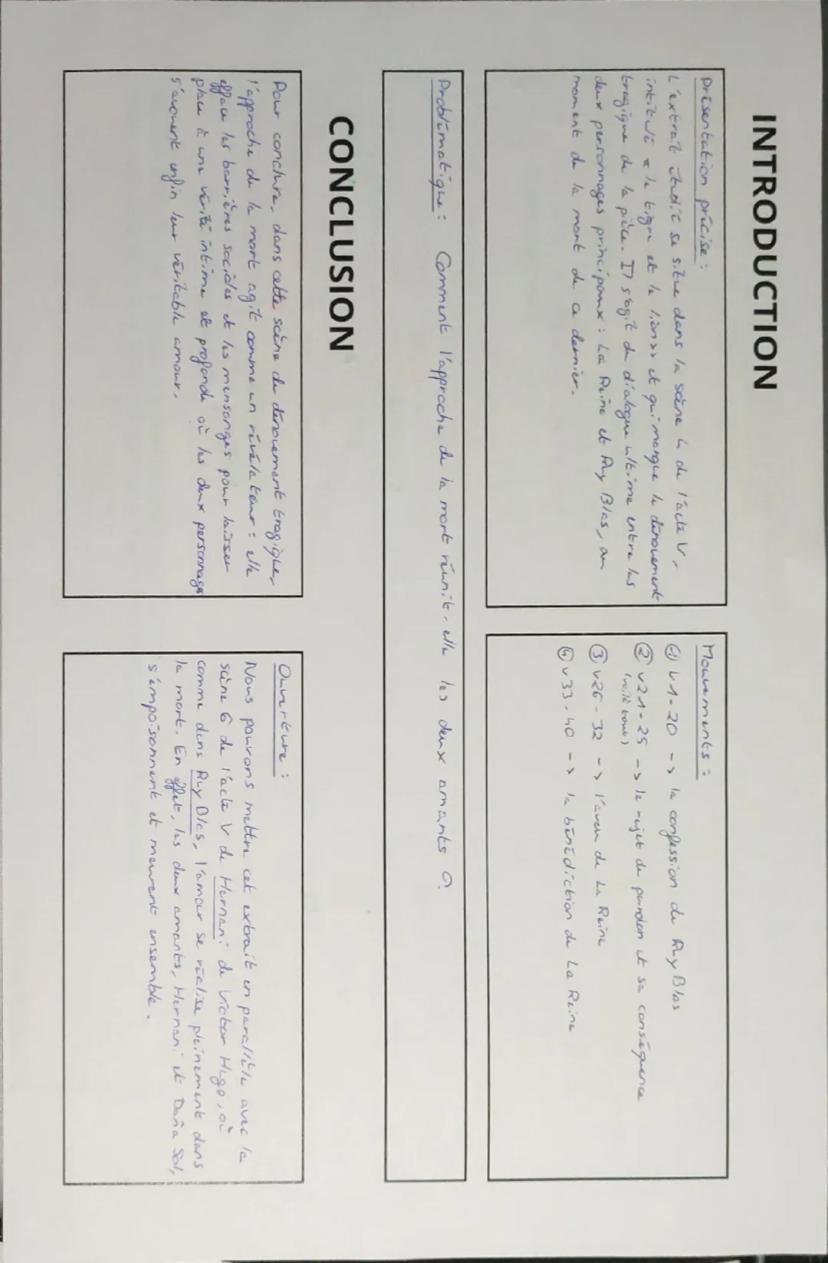 INTRODUCTION
Présentation précise :
L'extrait étudié se situe dans la scène 4 de l'acte V,
intitulé « le tigre et le lion >> et qui marque le dénouement
tragique de la pièce. Il s'agit du dialogue ultime entre les
deux personnages principaux : La Reine et Ruy Blas, au
moment de la mort de ce dernier.
Mouvements :
① v1-20 -> la confession de Ruy Blas
② v21-25 -> le rejet du pardon et sa conséquence
③ v26-32 -> l'aveu de La Reine
④ v33-40 -> la bénédiction de La Reine
Problématique : Comment l'approche de la mort réunit-elle les deux amants ?
CONCLUSION
Pour conclure, dans cette scène du dénouement tragique,
l'approche de la mort agit comme un révélateur : elle
efface les barrières sociales et les mensonges pour laisser
place à une vérité intime et profonde où les deux personnages
s'avouent enfin leur véritable amour.
Ouverture :
Nous pouvons mettre cet extrait en parallèle avec la
scène 6 de l'acte V de Hernani de Victor Hugo, où
comme dans Ruy Blas, l'amour se réalise pleinement dans
la mort. En effet, les deux amants, Hernani et Doña Sol,
s'empoisonnent et meurent ensemble.